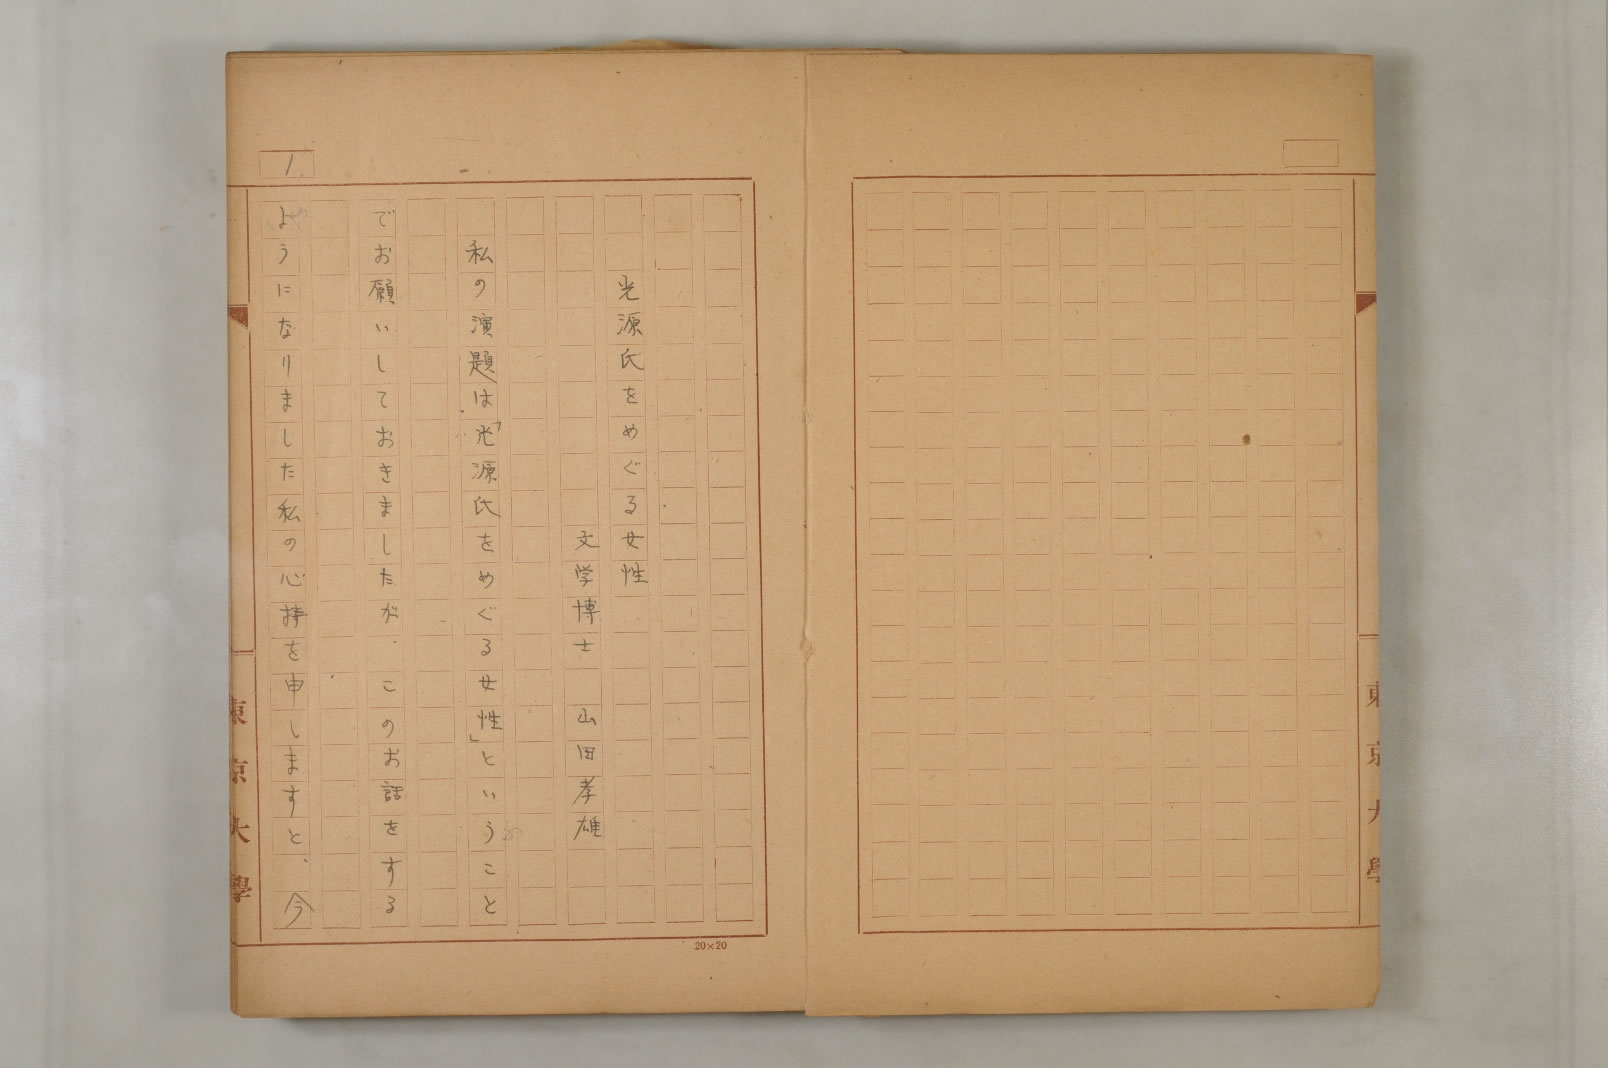 光源氏をめぐる女性
文学博士　山田孝雄
私の演題は「光源氏をめぐる女性」ということ
でお願いしておきましたが、このお話をする
ようになりました私の心持を申しますと、今
1.
東京大學
20×20
東京大學